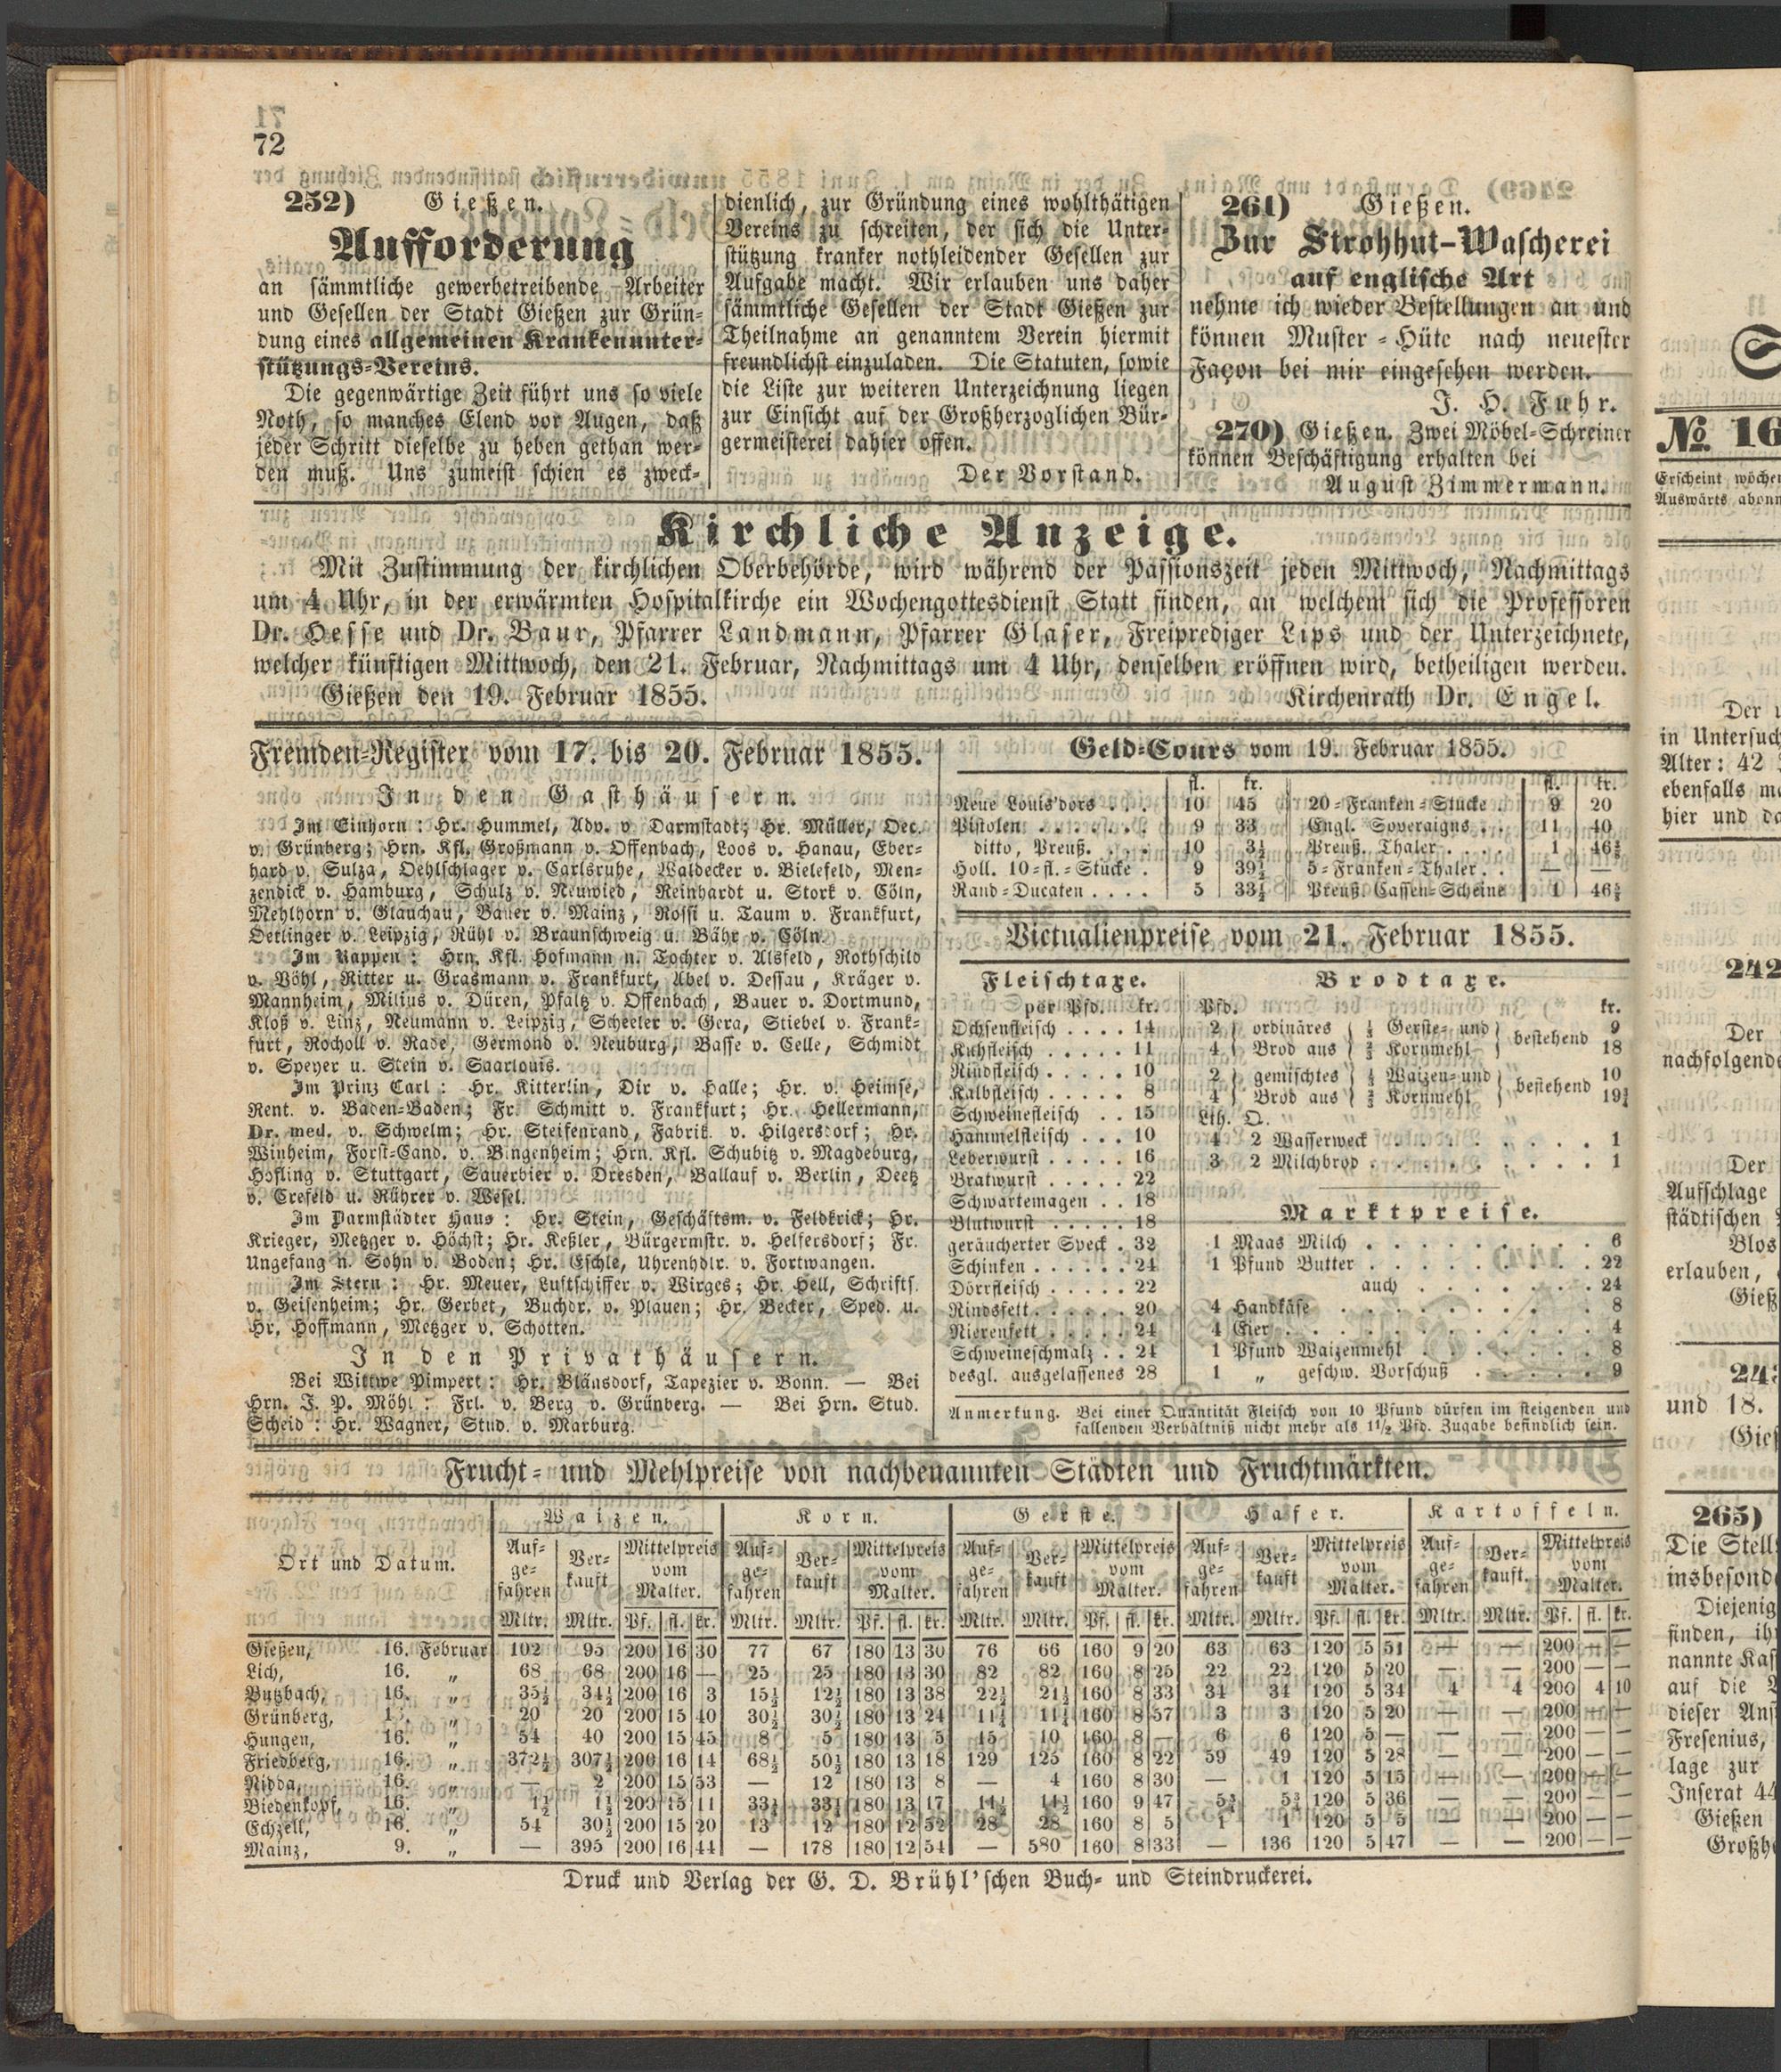 72
252) Gießen.
Aufforderung
an sämmtliche gewerbetreibende Arbeiter
und Gesellen der Stadt Gießen zur Grün-
dung eines allgemeinen Krankenunter-
stützungs-Vereins.
Die gegenwärtige Zeit führt uns so viele
Noth, so manches Elend vor Augen, daß
jeder Schritt dieselbe zu heben gethan wer-
den muß. Uns zumeist schien es zweck-
dienlich, zur Gründung eines wohlthätigen
Vereins zu schreiten, der sich die Unter-
stützung kranker nothleidender Gesellen zur
Aufgabe macht. Wir erlauben uns daher
sämmtliche Gesellen der Stadt Gießen zur
Theilnahme an genanntem Verein hiermit
freundlichst einzuladen. Die Statuten, sowie
die Liste zur weiteren Unterzeichnung liegen
zur Einsicht auf der Großherzoglichen Bür-
germeisterei dahier offen.
Der Vorstand.
261) Gießen.
Zur Strohhut-Wascherei
auf englische Art
nehme ich wieder Bestellungen an und
können Muster-Hüte nach neuester
Façon bei mir eingesehen werden.
J. H. Fuhr.
270) Gießen. Zwei Möbel-Schreiner
können Beschäftigung erhalten bei
August Zimmermann.
Kirchliche Anzeige.
Mit Zustimmung der kirchlichen Oberbehörde, wird während der Passionszeit jeden Mittwoch, Nachmittags
um 4 Uhr, in der erwärmten Hospitalkirche ein Wochengottesdienst Statt finden, an welchem sich die Professoren
Dr. Hesse und Dr. Baur, Pfarrer Landmann, Pfarrer Glaser, Freiprediger Lips und der Unterzeichnete,
welcher künftigen Mittwoch, den 21. Februar, Nachmittags um 4 Uhr, denselben eröffnen wird, betheiligen werden.
Gießen den 19. Februar 1855. Kirchenrath Dr. Engel.
Fremden-Register vom 17. bis 20. Februar 1855.
In den Gasthäusern.
Im Einhorn: Hr. Hummel, Adv. v. Darmstadt; Hr. Müller, Oec.
v. Grünberg; Hrn. Kfl. Großmann v. Offenbach, Loos v. Hanau, Eber-
hard v. Sulza, Oehlschlager v. Carlsruhe, Waldecker v. Bielefeld, Men-
zendick v. Hamburg, Schulz v. Neuwied, Reinhardt u. Stork v. Cöln,
Mehlhorn v. Glauchau, Bauer v. Mainz, Rossi u. Taum v. Frankfurt,
Oetlinger v. Leipzig, Rühl v. Braunschweig u. Bähr v. Cöln.
Im Rappen: Hrn. Kfl. Hofmann n. Tochter v. Alsfeld, Rothschild
v. Vöhl, Ritter u. Grasmann v. Frankfurt, Abel v. Dessau, Kräger v.
Mannheim, Milius v. Düren, Pfaltz v. Offenbach, Bauer v. Dortmund,
Kloß v. Linz, Neumann v. Leipzig, Scheeler v. Gera, Stiebel v. Frank-
furt, Rocholl v. Rade, Germond v. Neuburg, Basse v. Celle, Schmidt
v. Speyer u. Stein v. Saarlouis.
Im Prinz Carl: Hr. Kitterlin, Dir v. Halle; Hr. v. Heimse,
Rent. v. Baden-Baden; Fr. Schmitt v. Frankfurt; Hr. Hellermann,
Dr. med. v. Schwelm; Hr. Steifenrand, Fabrik. v. Hilgersdorf; Hr.
Winheim, Forst-Cand. v. Bingenheim; Hrn. Kfl. Schubitz v. Magdeburg,
Hofling v. Stuttgart, Sauerbier v. Dresden, Ballauf v. Berlin, Deetz
v. Crefeld u. Rührer v. Wesel.
Im Darmstädter Haus: Hr. Stein, Geschäftsm. v. Feldkrick; Hr.
Krieger, Metzger v. Höchst; Hr. Keßler, Bürgermstr. v. Helfersdorf; Fr.
Ungefang n. Sohn v. Boden; Hr. Eschle, Uhrenhdlr. v. Fortwangen.
Im Stern: Hr. Meuer, Luftschiffer v. Wirges; Hr. Hell, Schrifts.
v. Geisenheim; Hr. Gerbet, Buchdr. v. Plauen; Hr. Becker, Sped. u.
Hr. Hoffmann, Metzger v. Schotten.
In den Privathäusern.
Bei Wittwe Pimpert: Hr. Blänsdorf, Tapezier v. Bonn. — Bei
Hrn. J. P. Möhl: Frl. v. Berg v. Grünberg. — Bei Hrn. Stud.
Scheid: Hr. Wagner, Stud. v. Marburg.
Geld-Cours vom 19. Februar 1855.
fl. kr. fl. kr.
Neue Louis'dors . . . 10 45 20-Franken-Stücke . 9 20
Pistolen . . . . . . . 9 33 Engl. Soveraigns . . 11 40
ditto, Preuß. . . . 10 3½ Preuß. Thaler . . . . 1 46½
Holl. 10-fl.-Stücke . 9 39½ 5-Franken-Thaler . . — —
Rand-Ducaten . . . . 5 33½ Preuß. Cassen-Scheine 1 46½
Victualienpreise vom 21. Februar 1855.
Fleischtaxe.
per Pfd. kr.
Ochsenfleisch . . . . 14
Kuhfleisch . . . . . 11
Rindfleisch . . . . . 10
Kalbfleisch . . . . . 8
Schweinefleisch . . 15
Hammelfleisch . . . 10
Leberwurst . . . . . 16
Bratwurst . . . . . 22
Schwartemagen . . 18
Blutwurst . . . . . 18
geräucherter Speck . 32
Schinken . . . . . . 24
Dörrfleisch . . . . . 22
Rindsfett . . . . . . 20
Nierenfett . . . . . 24
Schweineschmalz . . 24
desgl. ausgelassenes 28
Brodtaxe.
Pfd. kr.
2 ordinäres ⅓ Gerste- und bestehend 9
4 Brod aus ⅔ Kornmehl 18
2 gemischtes ⅓ Waizen- und bestehend 10
4 Brod aus ⅔ Kornmehl 19¾
Lth. Q.
4 2 Wasserweck . . . . . . . . 1
3 2 Milchbrod . . . . . . . . . 1
Marktpreise.
1 Maas Milch . . . . . . . . . 6
1 Pfund Butter . . . . . . . . . 22
auch . . . . . . . 24
4 Handkäse . . . . . . . . . . 8
4 Eier . . . . . . . . . . . . 4
1 Pfund Waizenmehl . . . . . . . 8
1 „ geschw. Vorschuß . . . . . 9
Anmerkung. Bei einer Quantität Fleisch von 10 Pfund dürfen im steigenden und
fallenden Verhältniß nicht mehr als 1½ Pfd. Zugabe befindlich sein.
Frucht- und Mehlpreise von nachbenannten Städten und Fruchtmärkten.
Ort und Datum. Waizen. Korn. Gerste. Hafer. Kartoffeln.
Auf-ge-fahren Ver-kauft Mittelpreis vom Malter. Auf-ge-fahren Ver-kauft Mittelpreis vom Malter. Auf-ge-fahren Ver-kauft Mittelpreis vom Malter. Auf-ge-fahren Ver-kauft Mittelpreis vom Malter. Auf-ge-fahren Ver-kauft. Mittelpreis vom Malter.
Mltr. Mltr. Pf. fl. kr. Mltr. Mltr. Pf. fl. kr. Mltr. Mltr. Pf. fl. kr. Mltr. Mltr. Pf. fl. kr. Mltr. Mltr. Pf. fl. kr.
Gießen, 16. Februar 102 95 200 16 30 77 67 180 13 30 76 66 160 9 20 63 63 120 5 51 — — 200 — —
Lich, 16. „ 68 68 200 16 — 25 25 180 13 30 82 82 160 8 25 22 22 120 5 20 — — 200 — —
Butzbach, 16. „ 35½ 34½ 200 16 3 15½ 12½ 180 13 38 22½ 21½ 160 8 33 34 34 120 5 34 4 4 200 4 10
Grünberg, „ 20 20 200 15 40 30½ 30½ 180 13 24 11½ 11½ 160 8 57 3 3 120 5 20 — — 200 — —
Hungen, 16. „ 54 40 200 15 45 8 5 180 13 5 15 10 160 8 — 6 6 120 5 — — — 200 — —
Friedberg, 16. „ 372½ 307½ 200 16 14 68½ 50½ 180 13 18 129 125 160 8 22 59 49 120 5 28 — — 200 — —
Nidda, 16. „ — 2 200 15 53 — 12 180 13 8 — 4 160 8 30 — 1 120 5 15 — — 200 — —
Biedenkopf, 16. „ 1½ 1½ 200 15 11 33½ 33½ 180 13 17 14½ 14½ 160 9 47 5¾ 5¾ 120 5 36 — — 200 — —
Echzell, 16. „ 54 30½ 200 15 20 13 12 180 12 52 28 28 160 8 5 1 1 120 5 5 — — 200 — —
Mainz, 9. „ — 395 200 16 44 — 178 180 12 54 — 580 160 8 33 — 136 120 5 47 — — 200 — —
Druck und Verlag der G. D. Brühl'schen Buch- und Steindruckerei.
№ 16
Erscheint
Auswärts
Der
in
Alter: 42
ebenfalls
hier und
242
Der
Der
Aufschlage
städtischen
Blos
erlauben,
und 18.
265)
Die
finden,
auf die
dieser
Fresenius,
lage zur
Inserat 44
Gießen